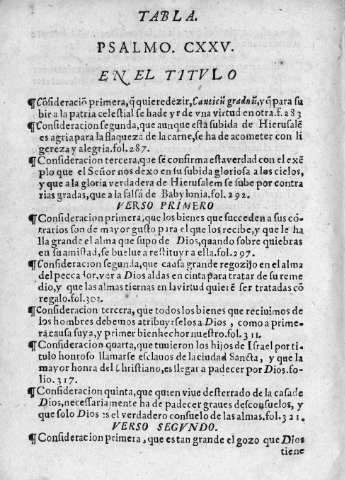 TABLA.
PSALMO. CXXV.
EN EL TITVLO
¶Cõsideraciõ primera, q̃ quiere dezir, Canticũ graduũ, y q̃ para su
bir a la patria celestial se hade yr de vna virtud en otra.f.283
¶Consideracion segunda, que aunque esta subida de Hierusalẽ
es agria para la flaqueza de la carne, se ha de acometer con li
gereza y alegria.fol.287.
¶Consideracion tercera, que se cõfirma esta verdad con el exẽ
plo que el Señor nos dexo en su subida gloriosa a los cielos,
y que a la gloria verdadera de Hierusalem se sube por contra
rias gradas, que a la falsa de Babylonia.fol.292.
VERSO PRIMERO
¶Consideracion primera, que los bienes que succeden a sus cõ-
trarios son de mayor gusto para el que los recibe, y que le ha
lla grande el alma que supo de Dios, quando sobre quiebras
en su amistad, se buelue a restituyr a ella.fol.297.
¶Consideracion segunda, que causa grande regozijo en el alma
del peccador, ver a Dios aldas en cinta para tratar de su reme
dio, y que las almas tiernas en la virtud quierẽ ser tratadas cõ
regalo.fol.301.
¶Consideracion tercera, que todos los bienes que reciuimos de
los hombres debemos atribuyrselos a Dios, como a prime-
ra causa suya, y primer bienhechor nuestro.fol.311.
¶Consideracion quarta, que tuuieron los hijos de Israel por ti
tulo honroso llamarse esclauos de la ciudad Sancta, y que la
mayor honra del Christiano, es llegar a padecer por Dios.fo-
lio.317.
¶Consideracion quinta, que quien viue desterrado de la casa de
Dios, necessariamente ha de padecer graues desconsuelos, y
que solo Dios es el verdadero consuelo de las almas.fol.321.
VERSO SEGVNDO.
¶Consideracion primera, que es tan grande el gozo que Dios
tiene